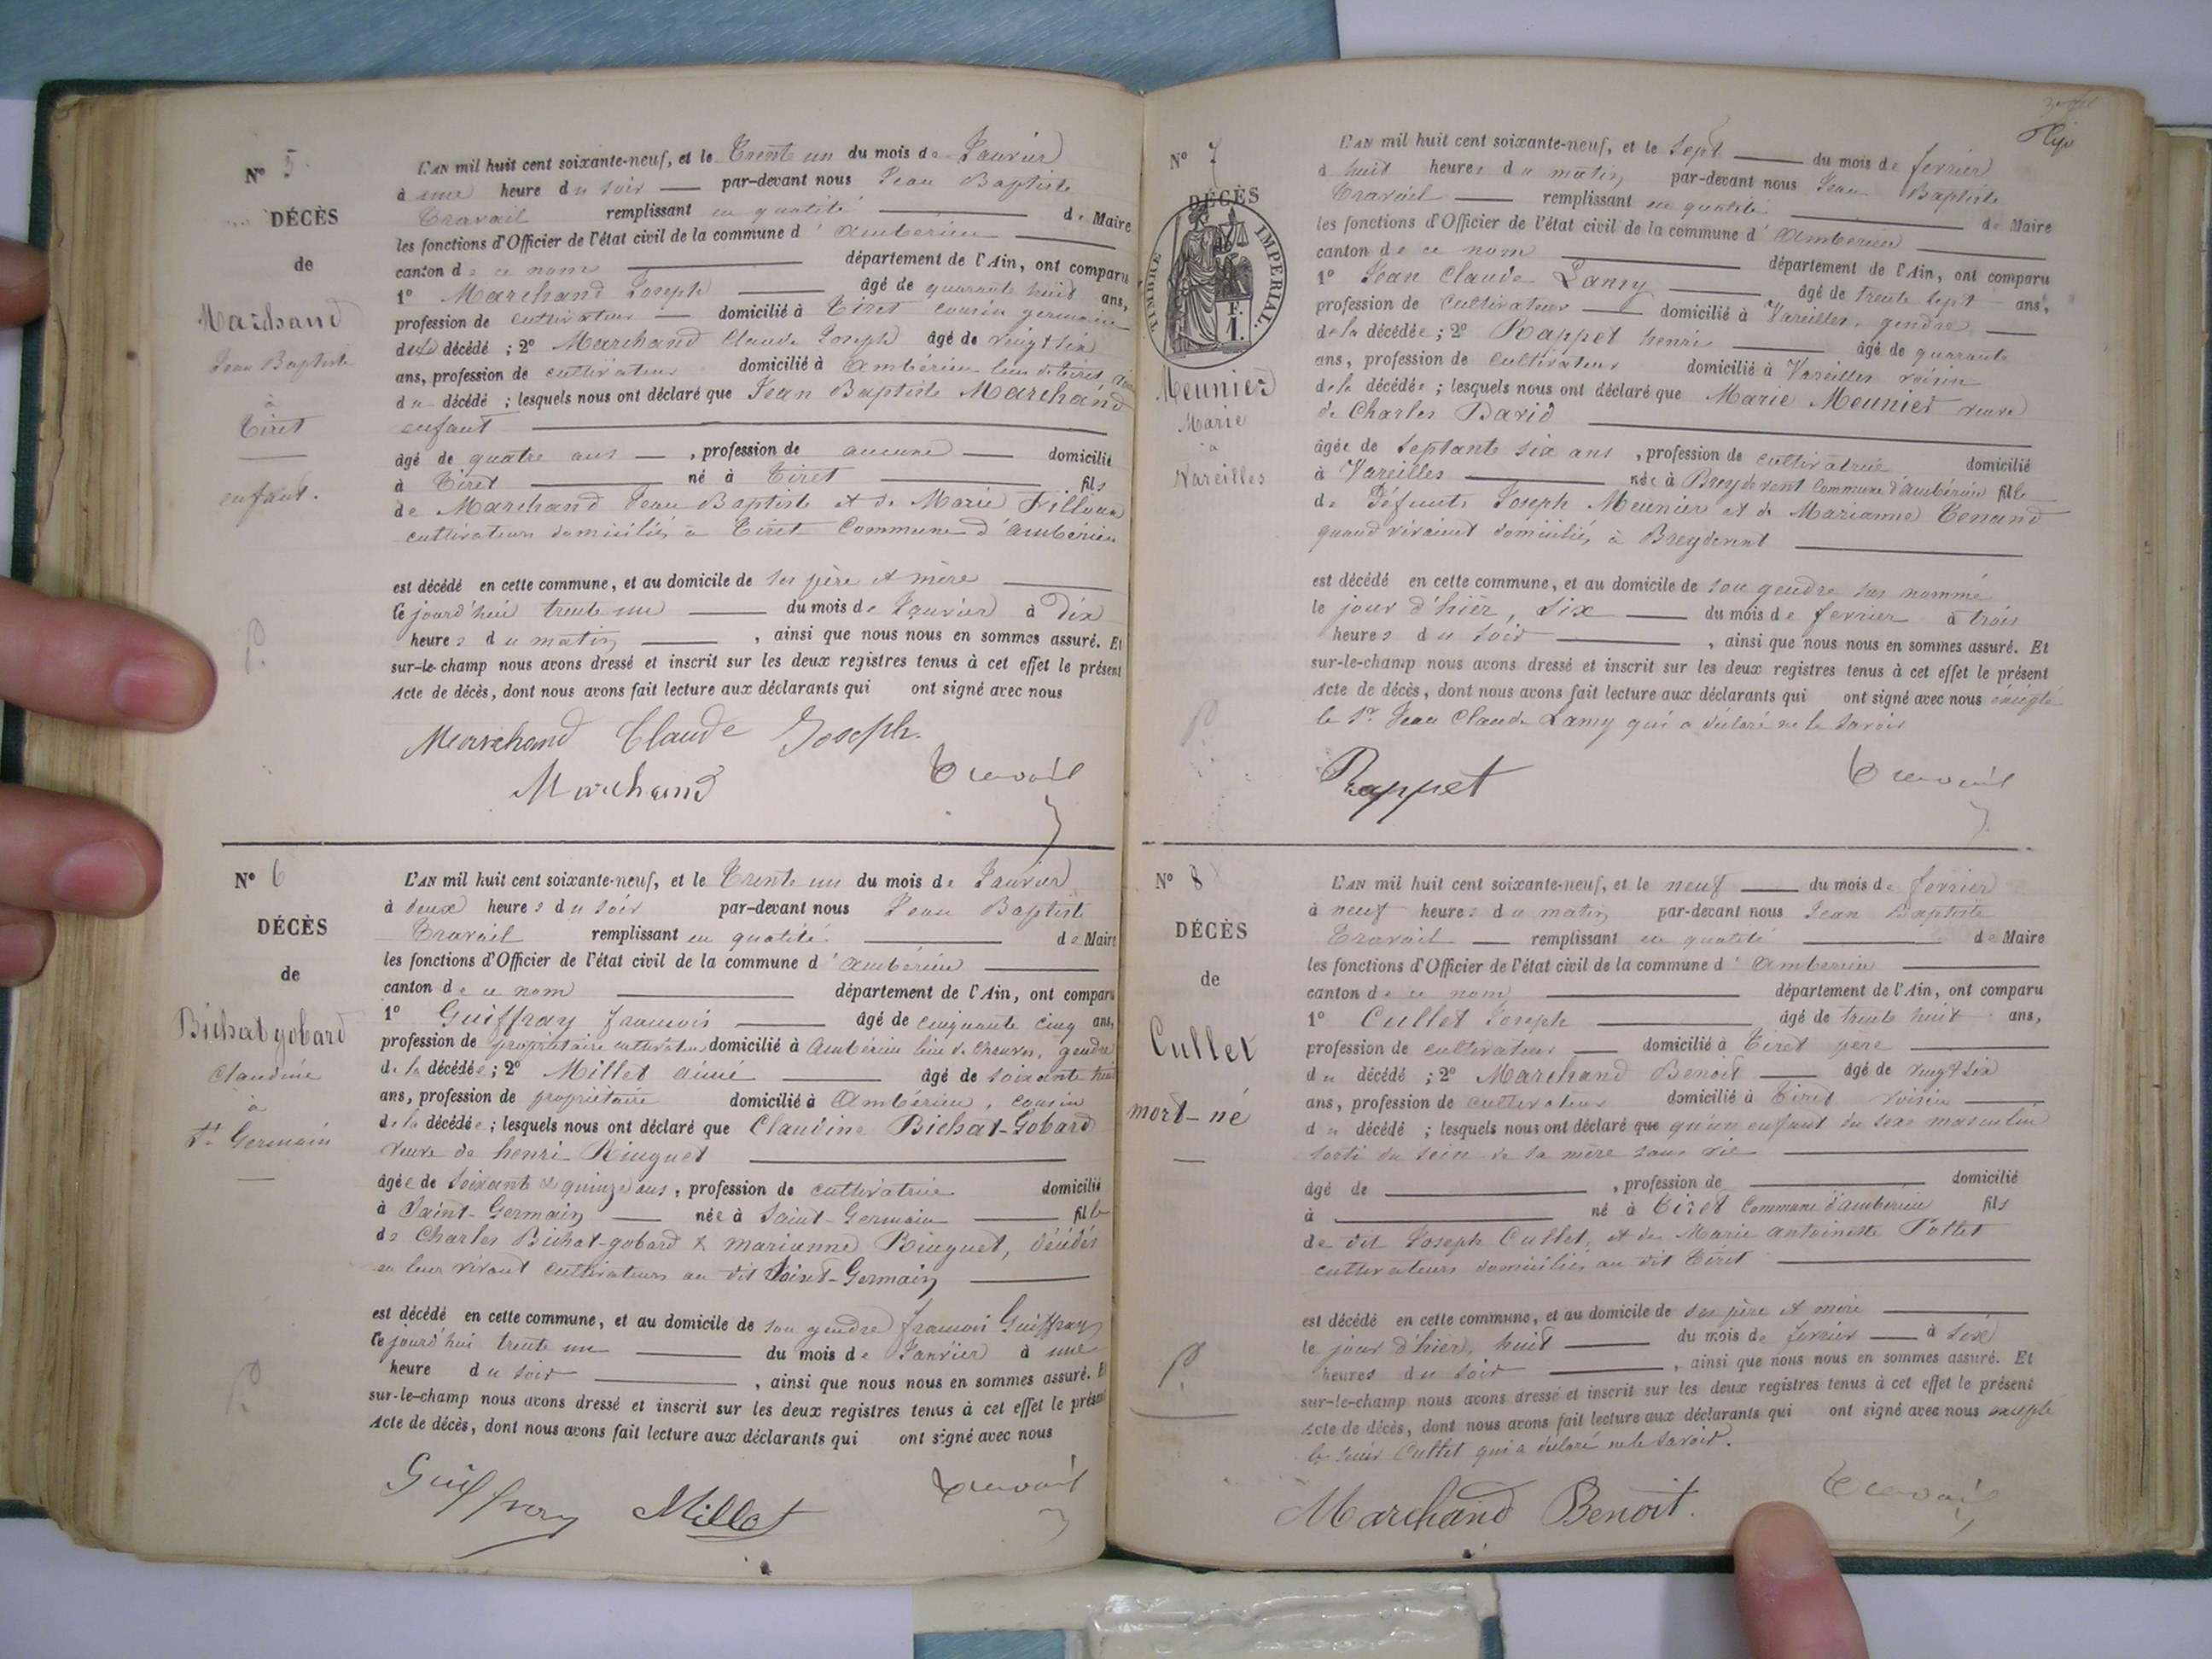 N° 5.
DÉCÈS
de
Marchand
Jean Baptiste
à
Tiret
enfant.
L'AN mil huit cent soixante-neuf, et le Trente un du mois de Janvier
à une heure du soir par-devant nous Jean Baptiste
Travail remplissant en qualité de Maire
les fonctions d'Officier de l'état civil de la commune d'Ambérieu
canton de ce nom département de l'Ain, ont comparu
1° Marchand Joseph âgé de quarante huit ans,
profession de cultivateur domicilié à Tiret cousin germain
du décédé ; 2° Marchand Claude Joseph âgé de vingt six
ans, profession de cultivateur domicilié à Ambérieu lieu de Tiret
du décédé ; lesquels nous ont déclaré que Jean Baptiste Marchand
enfant
âgé de quatre ans , profession de aucune domicilié
à Tiret né à Tiret fils
de Marchand Jean Baptiste et de Marie Trilloux
cultivateurs domiciliés à Tiret Commune d'Ambérieu
est décédé en cette commune, et au domicile de ses père et mère
le jourd'hui trente un du mois de Janvier à Dix
heures du matin , ainsi que nous nous en sommes assuré. Et
sur-le-champ nous avons dressé et inscrit sur les deux registres tenus à cet effet le présent
Acte de décès, dont nous avons fait lecture aux déclarants qui ont signé avec nous
Marchand Claude Joseph.
Marchand Travail
N° 6
DÉCÈS
de
Bichat gobard
Claudine
à
St Germain
L'AN mil huit cent soixante-neuf, et le Trente un du mois de Janvier
à deux heures du soir par-devant nous Jean Baptiste
Travail remplissant en qualité de Maire
les fonctions d'Officier de l'état civil de la commune d'Ambérieu
canton de ce nom département de l'Ain, ont comparu
1° Guiffray françois âgé de cinquante cinq ans,
profession de propriétaire cultivateur domicilié à Ambérieu lieu de gendre
de la décédée ; 2° Millet aimé âgé de soixante
ans, profession de propriétaire domicilié à Ambérieu, cousin
de la décédée ; lesquels nous ont déclaré que Claudine Bichat-Gobard
veuve de henri Ringuet
âgée de soixante & quinze ans, profession de cultivatrice domicilié
à Saint-Germain née à Saint-Germain fille
de Charles Bichat-gobard & marianne Ringuet, décédés
en leur vivant cultivateurs au dit Saint-Germain
est décédé en cette commune, et au domicile de son gendre françois Guiffray
le jourd'hui trente un du mois de Janvier à une
heure du soir , ainsi que nous nous en sommes assuré. Et
sur-le-champ nous avons dressé et inscrit sur les deux registres tenus à cet effet le présent
Acte de décès, dont nous avons fait lecture aux déclarants qui ont signé avec nous
Guiffray Millet Travail
N° 7
DÉCÈS
TIMBRE IMPERIAL.
1 F.
Meunier
Marie
à
Vareilles
L'AN mil huit cent soixante-neuf, et le Sept du mois de fevrier
à huit heures du matin par-devant nous Jean Baptiste
Travail remplissant en qualité de Maire
les fonctions d'Officier de l'état civil de la commune d'Ambérieu
canton de ce nom département de l'Ain, ont comparu
1° Jean Claude Lamy âgé de trente sept ans,
profession de cultivateur domicilié à Vareilles, gendre
de la décédée ; 2° Rappet henri âgé de quarante
ans, profession de cultivateur domicilié à Vareilles voisin
de la décédée ; lesquels nous ont déclaré que Marie Meunier veuve
de Charles David
âgée de Septante six ans , profession de cultivatrice domicilié
à Vareilles née à Breydevent Commune d'ambérieu fille
de Défunts Joseph Meunier et de Marianne Tenand
quand vivaient domiciliés à Breydevent
est décédé en cette commune, et au domicile de son gendre sus nommé
le jour d'hier, Six du mois de fevrier à trois
heures du soir , ainsi que nous nous en sommes assuré. Et
sur-le-champ nous avons dressé et inscrit sur les deux registres tenus à cet effet le présent
Acte de décès, dont nous avons fait lecture aux déclarants qui ont signé avec nous
le Sr Jean Claude Lamy qui a déclaré ne le savoir
Rappet Travail
N° 8
DÉCÈS
de
Cullet
mort-né
L'AN mil huit cent soixante-neuf, et le neuf du mois de fevrier
à neuf heures du matin par-devant nous Jean Baptiste
Travail remplissant en qualité de Maire
les fonctions d'Officier de l'état civil de la commune d'Amberieu
canton de ce nom département de l'Ain, ont comparu
1° Cullet Joseph âgé de trente huit ans,
profession de cultivateur domicilié à Tiret père
du décédé ; 2° Marchand Benoit âgé de vingt six
ans, profession de cultivateur domicilié à Tiret voisin
du décédé ; lesquels nous ont déclaré que qu'un enfant du sexe masculin
sorti du sein de sa mère sans vie
âgé de , profession de domicilié
à né à Tiret Commune d'ambérieu fils
de dit Joseph Cullet, et de Marie antoinette Pottet
cultivateurs domiciliés au dit Tiret
est décédé en cette commune, et au domicile de ses père et mère
le jour d'hier, huit du mois de fevrier à six
heures du soir , ainsi que nous nous en sommes assuré. Et
sur-le-champ nous avons dressé et inscrit sur les deux registres tenus à cet effet le présent
Acte de décès, dont nous avons fait lecture aux déclarants qui ont signé avec nous excepté
le sieur Cullet qui a déclaré ne le savoir.
Marchand Benoit. Travail